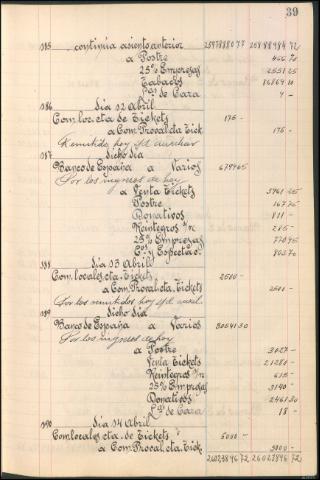 39
385 continúa asiento anterior 25978880 77 25898984 72
a Postre
25% Empresas 2551 25
Tabacos 76869 10
Lª de Cara 9 -
386 dia 12 Abril
Com. loc. cta de Tickets 175 -
a Com. Proval. cta. Tick. 175 -
Remitido hoy s/ auxiliar
387 dicho dia
Banco de España a Varios 6794 65
Por los ingresos de hoy
a Venta Tickets
Postre 167 75
Donativos 811 -
Reintegros s/n 265 -
25% Empresas 770 95
Cº y Espectáº
388 dia 13 Abril
Com. locales, cta. Tickets 2500 -
a Com. Proval. cta. Tickets 2500 -
Por los remitidos hoy s/ auxil.
389 dicho dia
Banco de España a Varios 30541 30
Por los ingresos de hoy
a Postre 3027 -
Venta Tickets 21280 -
Reintegros s/n 615 -
25% Empresas 3140 -
Donativos 2461 30
Lª de Cara 18 -
390 dia 14 Abril
Com. locales cta. de Tickets 5000 -
a Com. Proval. cta. Tick. 5000 -
26023896 72 26023896 72